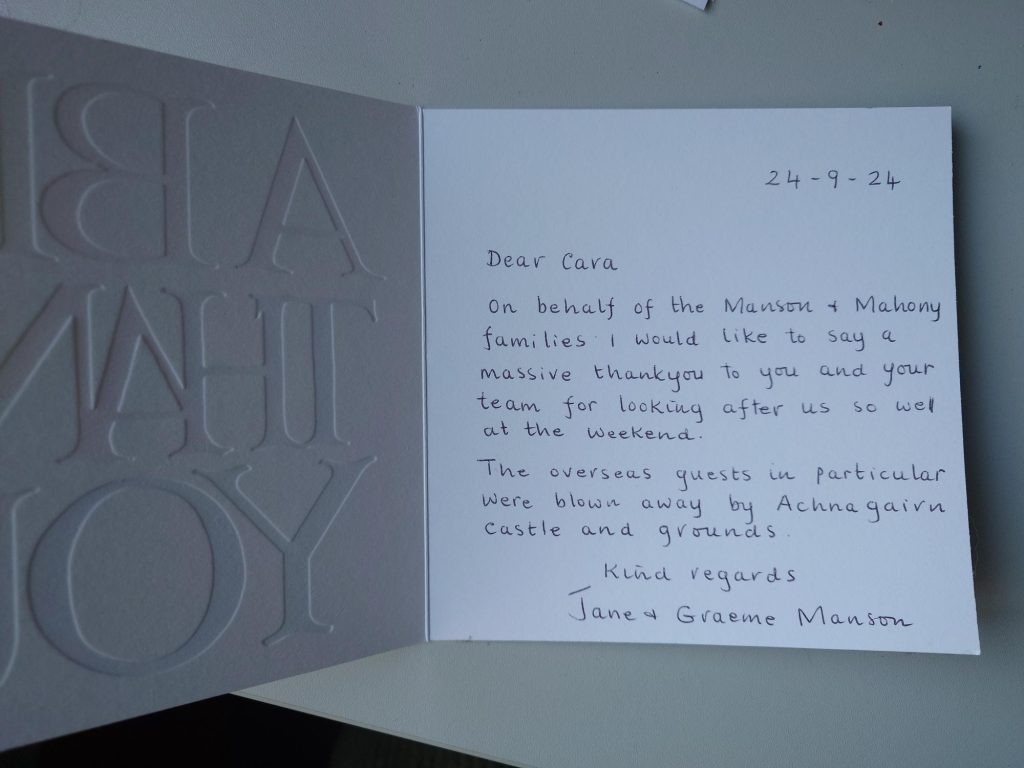 24-9-24
Dear Cara
On behalf of the Manson & Mahony
families I would like to say a
massive thankyou to you and your
team for looking after us so well
at the weekend.
The overseas guests in particular
were blown away by Achnagairn
Castle and grounds.
Kind regards
Jane & Graeme Manson